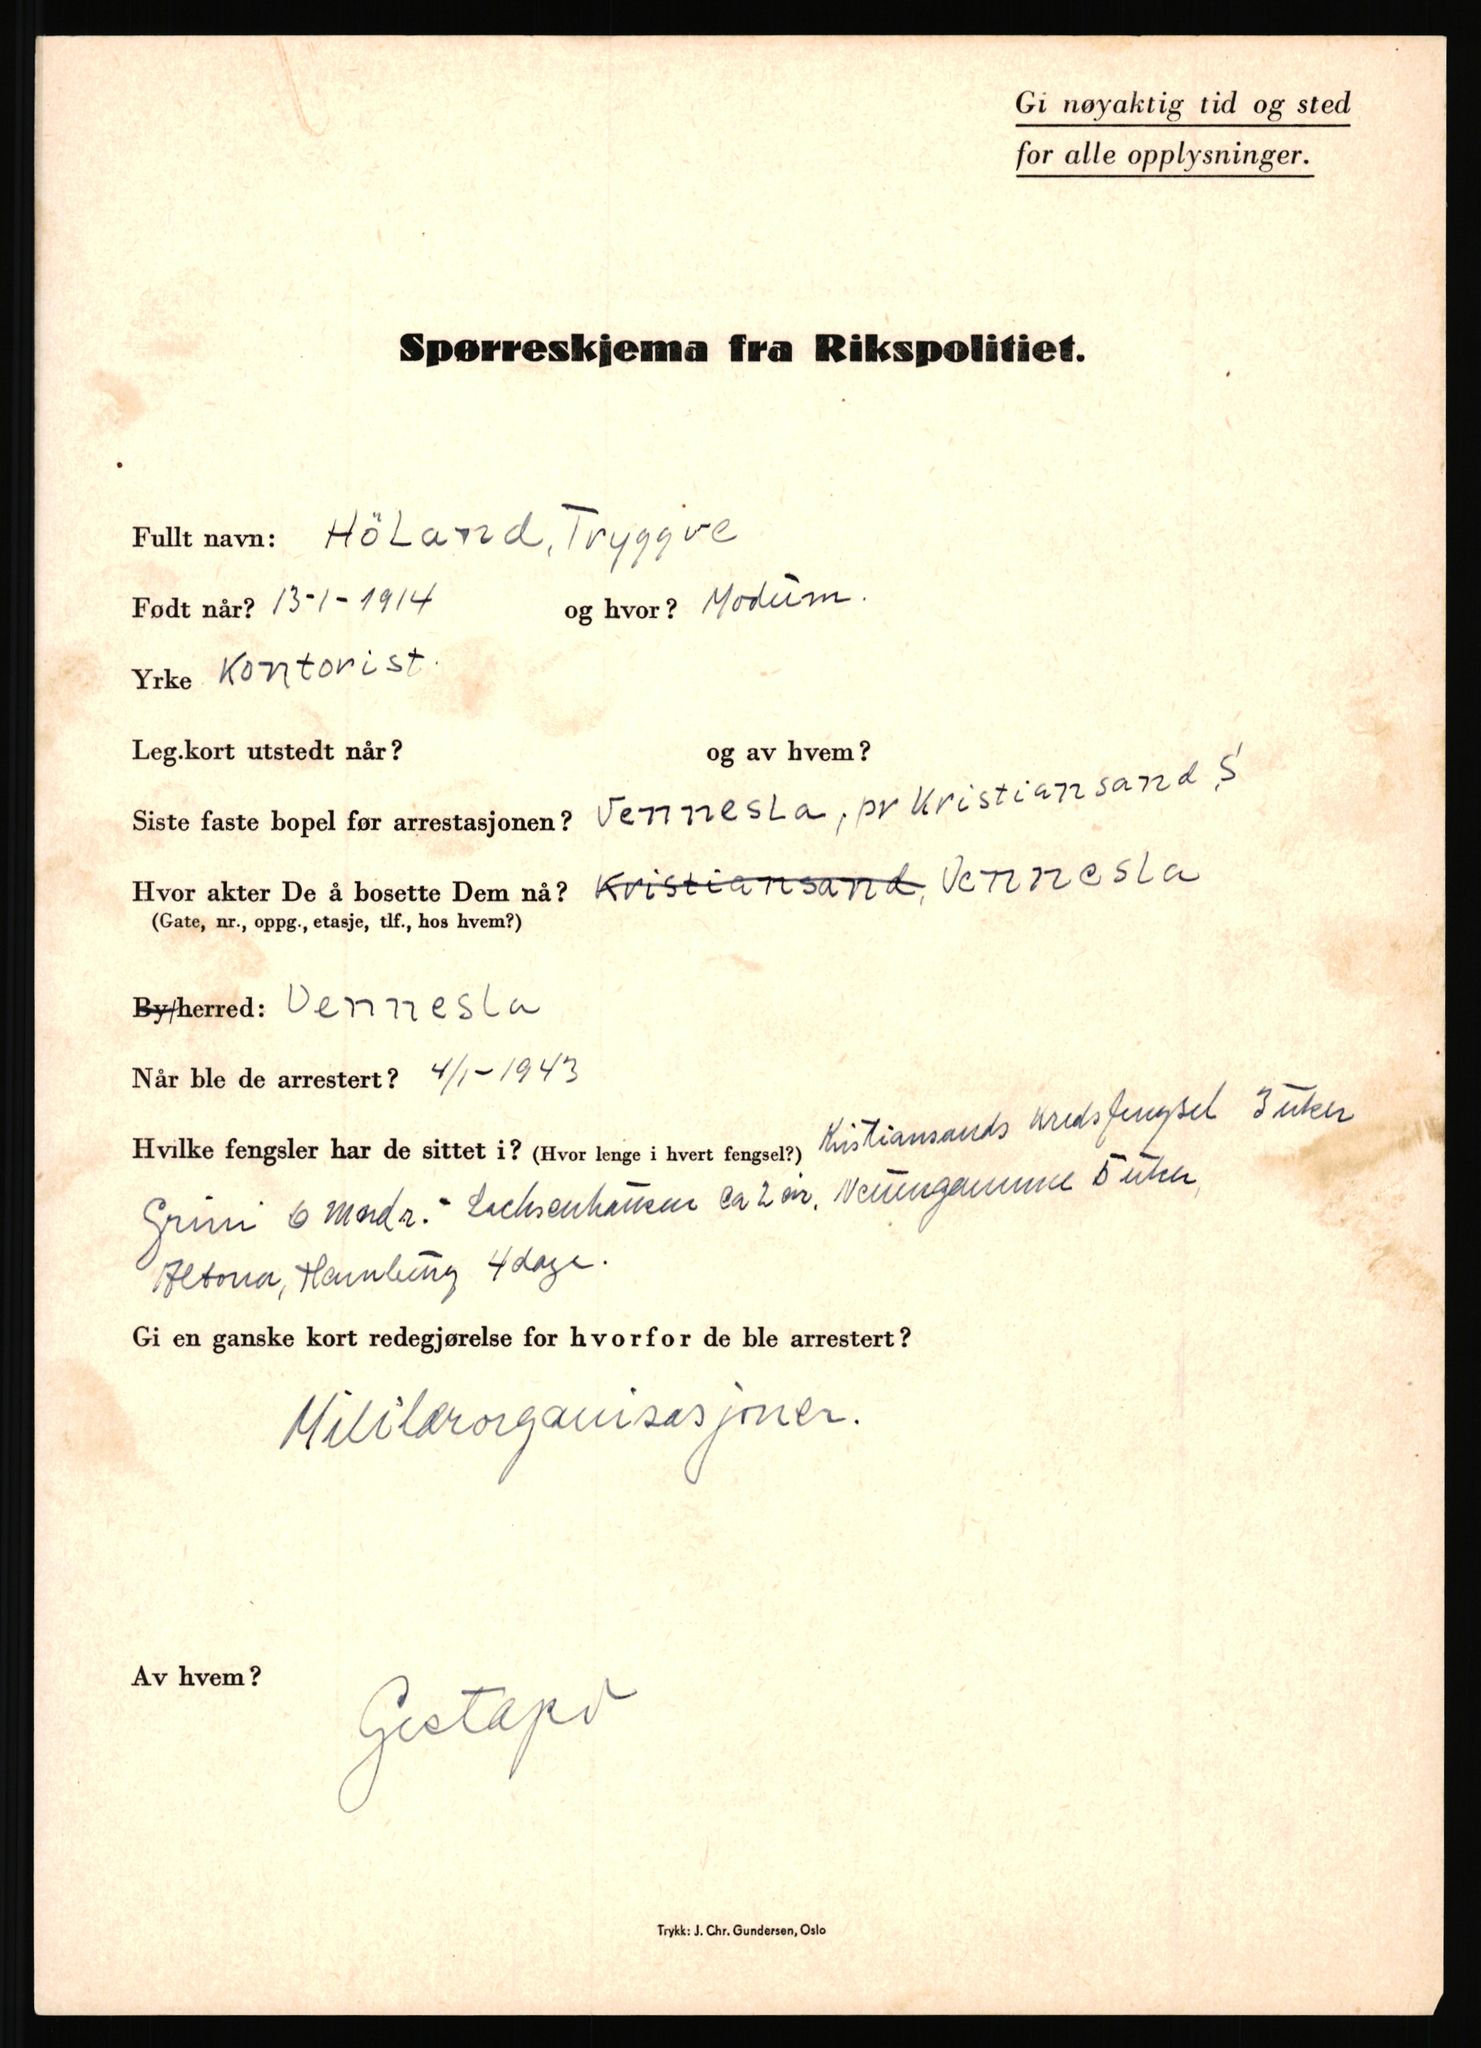 Gi nøyaktig tid og sted
for alle opplysninger.
Spørreskjema fra Rikspolitiet.
Fullt navn: Höland, Tryggve
Født når? 13-1-1914 og hvor? Modum.
Yrke Kontorist.
Leg.kort utstedt når? og av hvem?
Siste faste bopel før arrestasjonen? Vennesla, pr Kristiansand S
Hvor akter De å bosette Dem nå? Kristiansand, Vennesla
(Gate, nr., oppg., etasje, tlf., hos hvem?)
By/herred: Vennesla
Når ble de arrestert? 4/1-1943
Hvilke fengsler har de sittet i? (Hvor lenge i hvert fengsel?) Kristiansands kredsfengsel 3 uker
Grini 6 mndr. - Sachsenhausen ca 2 år, Neuengamme 5 uker,
Altona, Hamburg 4 dage.
Gi en ganske kort redegjørelse for hvorfor de ble arrestert?
Militærorganisasjoner.
Av hvem?
Gestapo
Trykk: J. Chr. Gundersen, Oslo